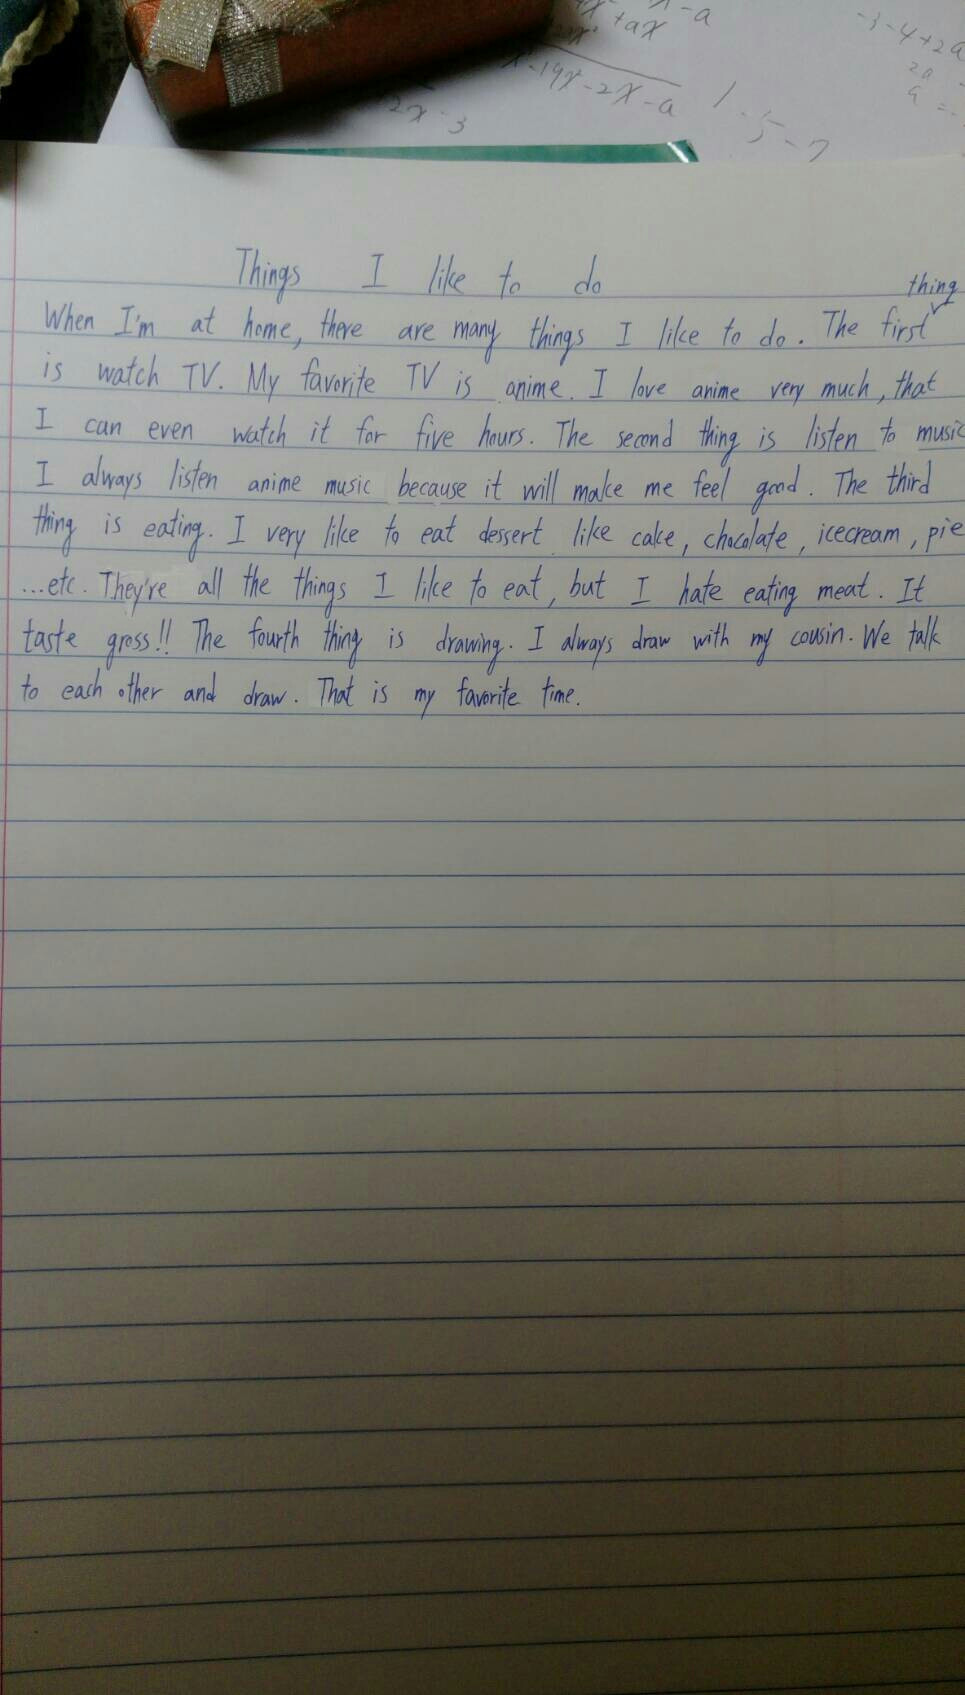 x - a
+ax
-3-4+2a
2a
-19x-2x-a
a = -
2x-3
1-5-7
Things I like to do
thing
When I'm at home, there are many things I like to do. The first
is watch TV. My favorite TV is anime. I love anime very much, that
I can even watch it for five hours. The second thing is listen to music
I always listen anime music because it will make me feel good. The third
thing is eating. I very like to eat dessert like cake, chocolate, icecream, pie
...etc. They're all the things I like to eat, but I hate eating meat. It
taste gross!! The fourth thing is drawing. I always draw with my cousin. We talk
to each other and draw. That is my favorite time.